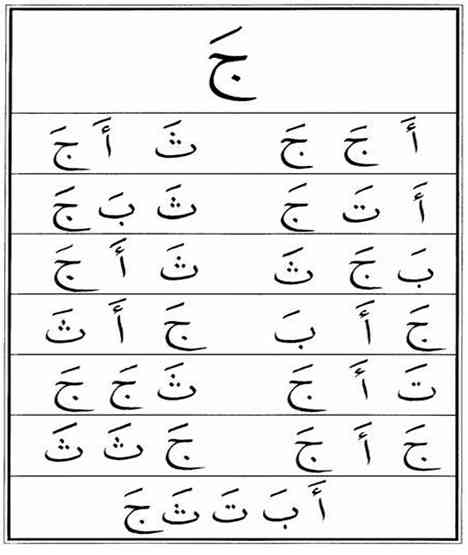 جَ
أَ جَ جَ ثَ أَ جَ
أَ تَ جَ ثَ بَ جَ
بَ جَ ثَ ثَ أَ جَ
جَ أَ بَ جَ أَ ثَ
تَ أَ جَ ثَ جَ جَ
جَ أَ جَ جَ ثَ ثَ
أَ بَ تَ ثَ جَ